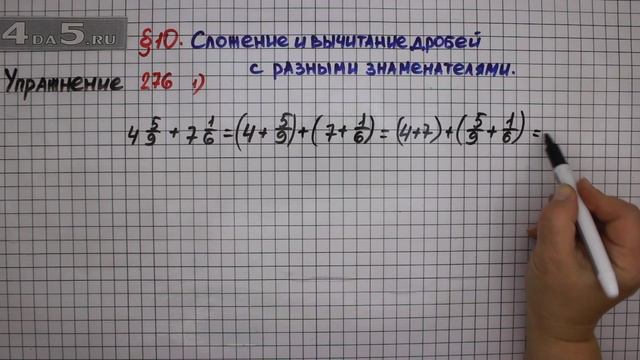 4DA5.RU
§10. Сложение и вычитание дробей
с разными знаменателями.
Упражнение 276 1)
4 5/9 + 7 1/6 = (4 + 5/9) + (7 + 1/6) = (4+7) + (5/9 + 1/6) =